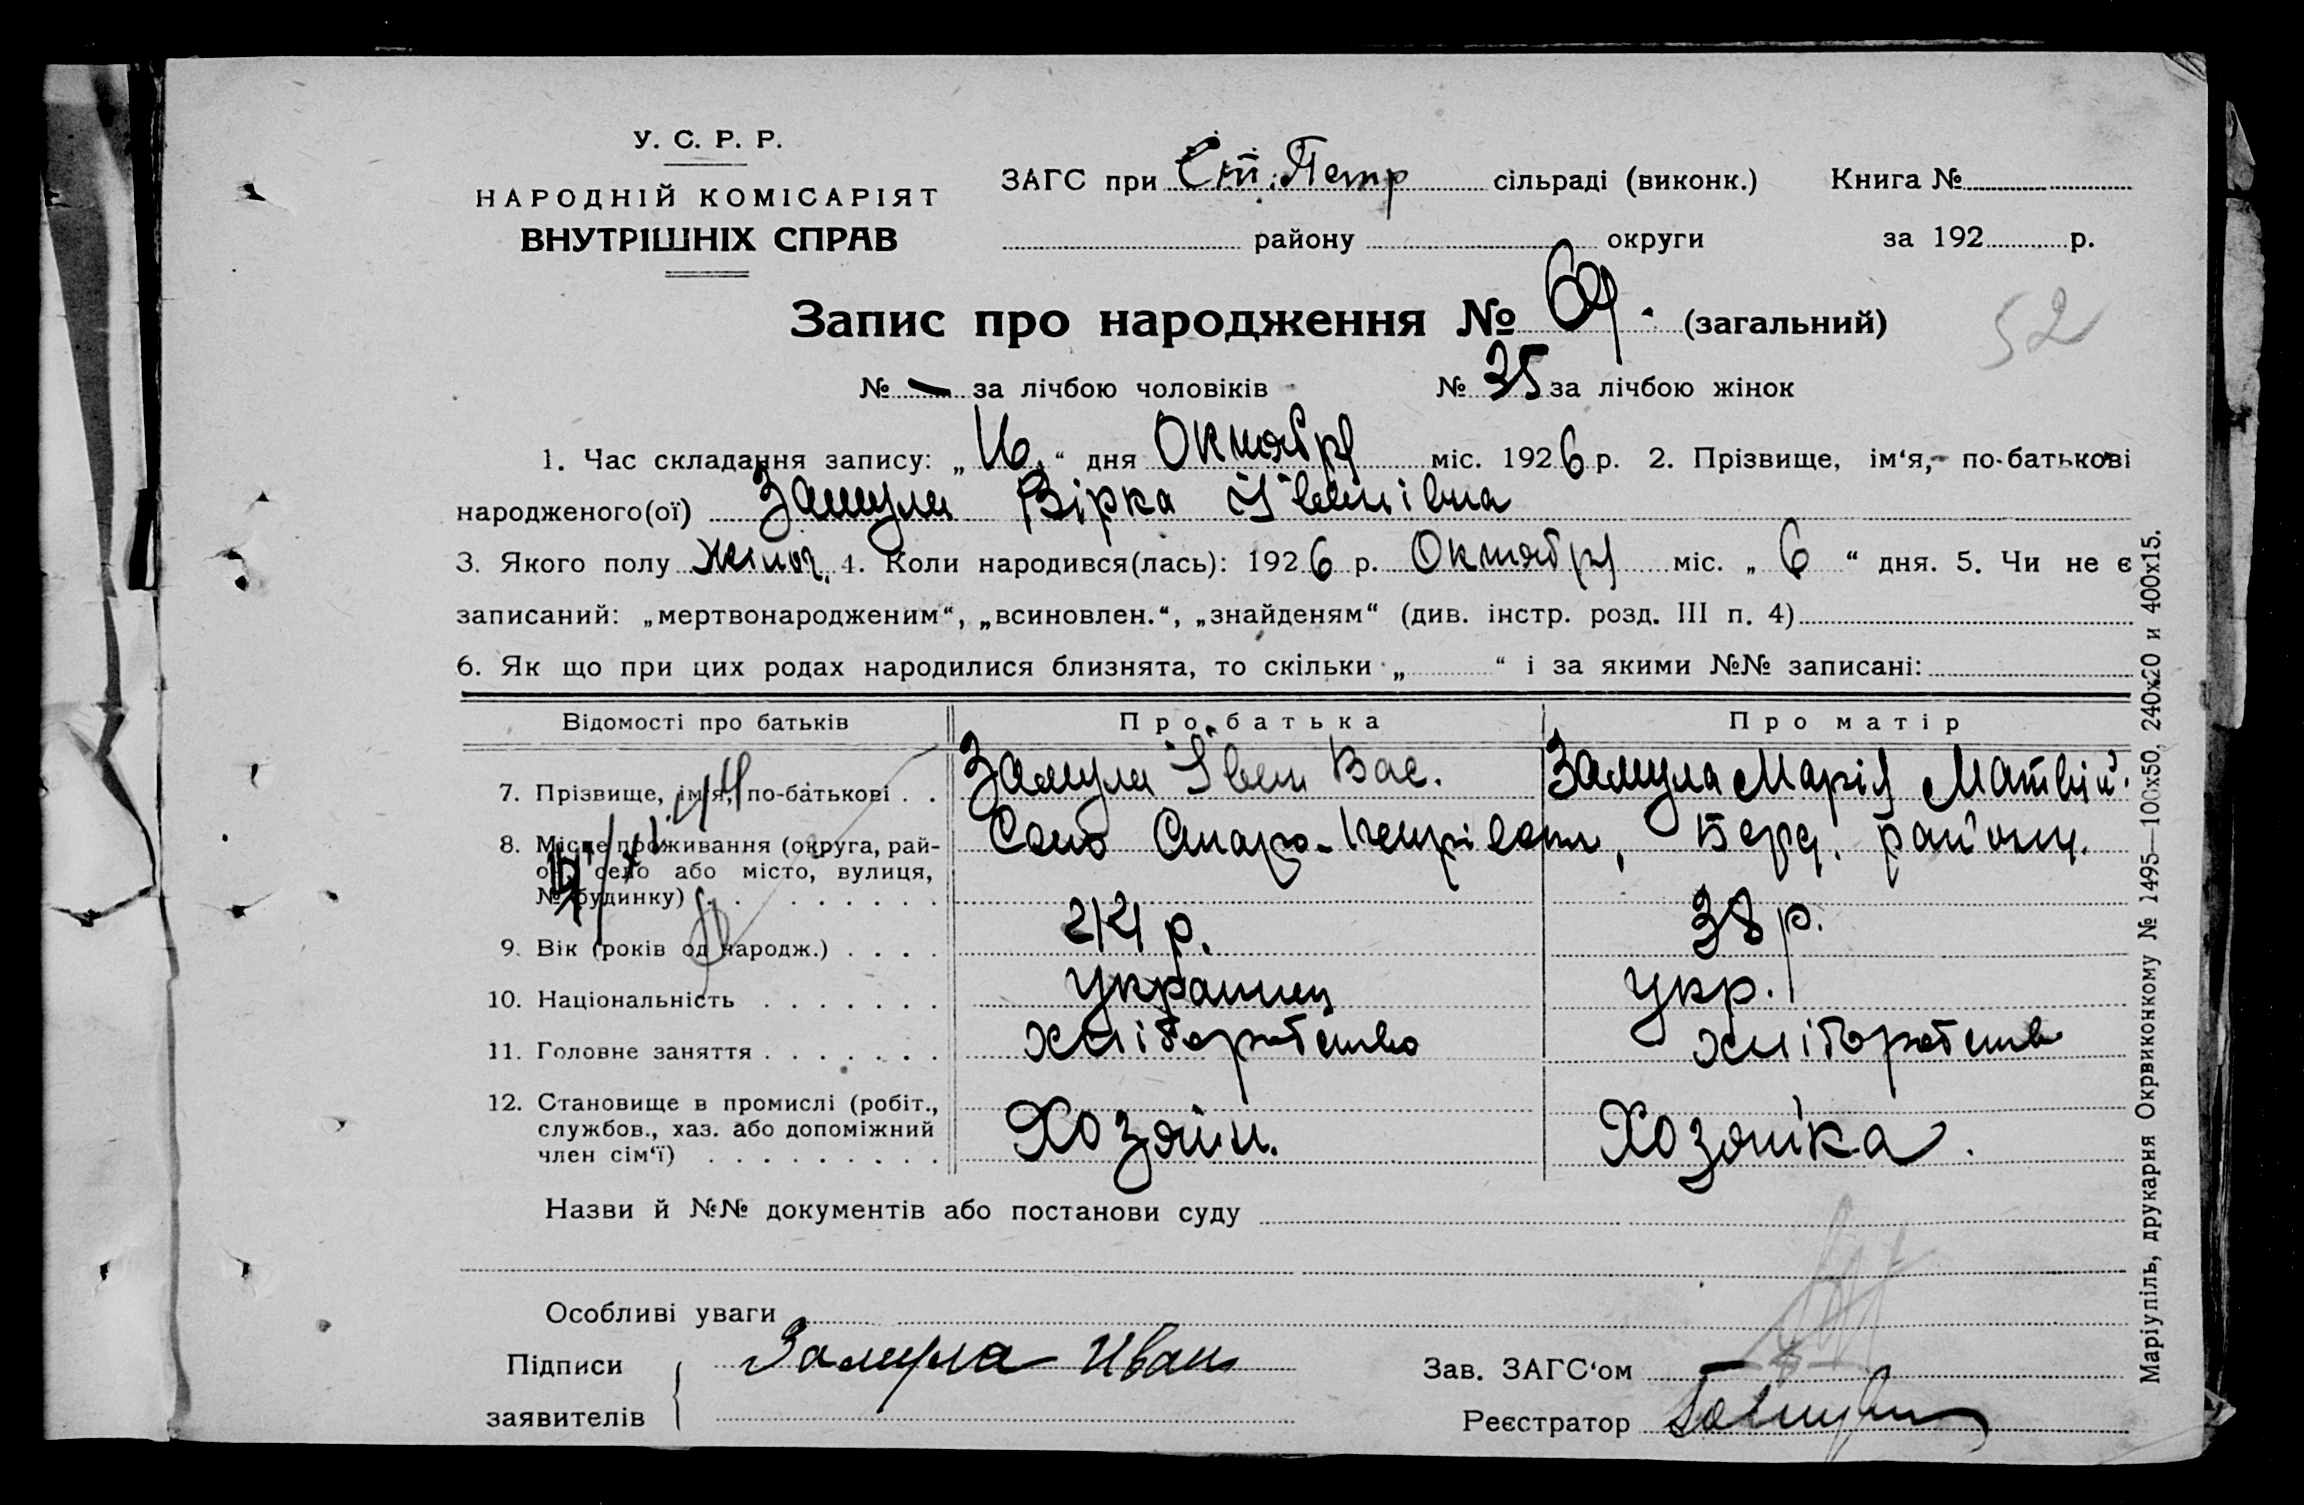 У. С. Р. Р.
НАРОДНІЙ КОМІСАРІЯТ
ВНУТРІШНІХ СПРАВ
ЗАГС при Ст. Петр сільраді (виконк.) Книга №
району округи за 192 р.
Запис про народження № 69. (загальний)
52
№ — за лічбою чоловіків № 35 за лічбою жінок
1. Час складання запису: „16.“ дня Октября міс. 1926 р. 2. Прізвище, ім‘я, по-батькові
народженого(ої) Замула Вірка Іванівна
3. Якого полу жіноч. 4. Коли народився(лась): 1926 р. Октября міс. „6“ дня. 5. Чи не є
записаний: „мертвонародженим“, „всиновлен.“, „знайденям“ (див. інстр. розд. III п. 4)
6. Як що при цих родах народилися близнята, то скільки „ “ і за якими №№ записані:
Відомості про батьків Про батька Про матір
7. Прізвище, ім‘я, по-батькові . . Замула Іван Вас. Замула Марія Матвій.
8. Місце проживання (округа, рай-
он, село або місто, вулиця,
№ будинку) Село Старо-Петрівки, Берд. району.
9. Вік (років од народж.) . . . . р. 38 р.
10. Національність . . . . . . . украинец укр.
11. Головне заняття . . . . . . . хліборобство хліборобств
12. Становище в промислі (робіт.,
службов., хаз. або допоміжний
член сім‘ї) . . . . . . . . . Хозяин. Хозяйка.
Назви й №№ документів або постанови суду
Особливі уваги
Підписи Замула Иван Зав. ЗАГС‘ом
заявителів Реєстратор
Маріупіль, друкарня Окрвиконкому № 1495—100х50, 240х20 и 400х15.